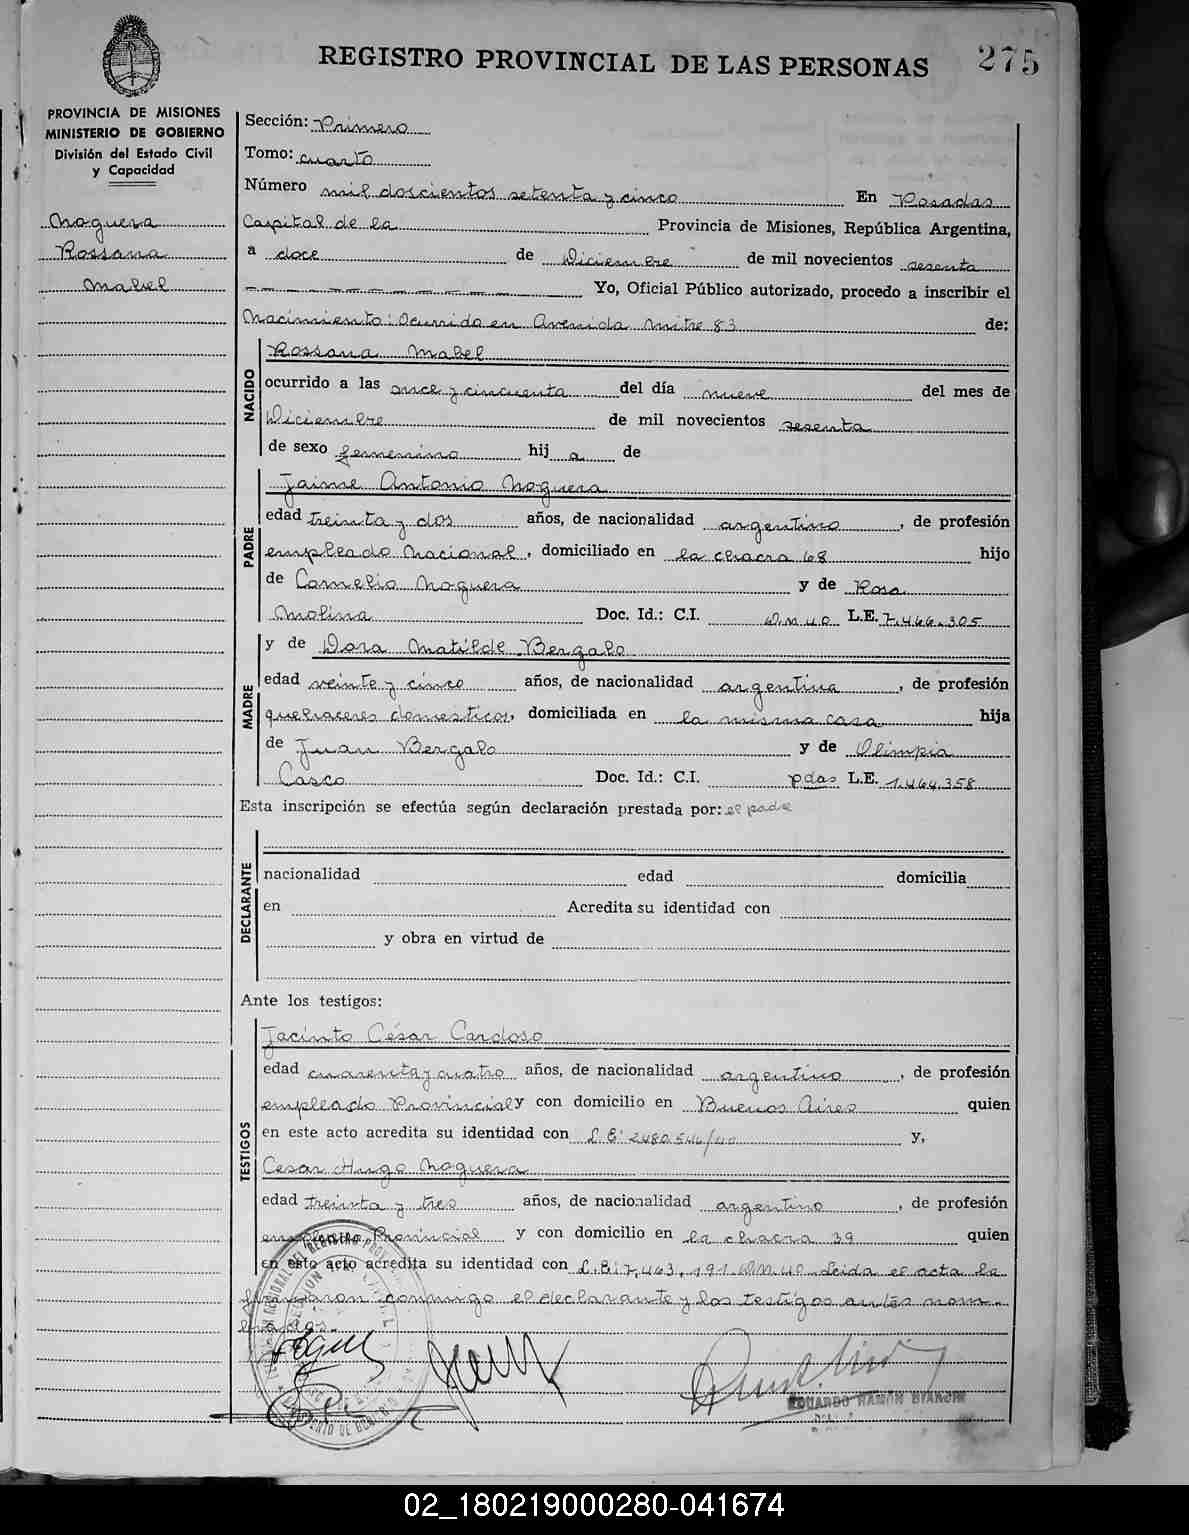 REGISTRO PROVINCIAL DE LAS PERSONAS 275
PROVINCIA DE MISIONES
MINISTERIO DE GOBIERNO
División del Estado Civil
y Capacidad
Noguera
Rossana
Mabel
Sección: Primero
Tomo: cuarto
Número mil doscientos setenta y cinco En Posadas
Capital de la Provincia de Misiones, República Argentina,
a doce de Diciembre de mil novecientos sesenta
Yo, Oficial Público autorizado, procedo a inscribir el
Nacimiento: Ocurrido en Avenida Mitre 83 de:
NACIDO
Rossana Mabel
ocurrido a las once y cincuenta del día nueve del mes de
Diciembre de mil novecientos sesenta
de sexo femenino hij a de
PADRE
Jaime Antonio Noguera
edad treinta y dos años, de nacionalidad argentino, de profesión
empleado Nacional, domiciliado en la chacra 68 hijo
de Cornelio Noguera y de Rosa
Molina Doc. Id.: C.I. D.M 40 L.E. 7.466.305
MADRE
y de Dora Matilde Bergalo
edad veinte y cinco años, de nacionalidad argentina, de profesión
quehaceres domesticos, domiciliada en la misma casa hija
de Juan Bergalo y de Olimpia
Casco Doc. Id.: C.I. pdas L.E. 1.464.358
Esta inscripción se efectúa según declaración prestada por: el padre
DECLARANTE
nacionalidad edad domicilia
en Acredita su identidad con
y obra en virtud de
Ante los testigos:
TESTIGOS
Jacinto César Cardoso
edad cuarenta y cuatro años, de nacionalidad argentino, de profesión
empleado Provincial y con domicilio en Buenos Aires quien
en este acto acredita su identidad con L.E: 2480.546/40 y,
Cesar Hugo Noguera
edad treinta y tres años, de nacionalidad argentino, de profesión
empleado Provincial y con domicilio en la chacra 39 quien
en este acto acredita su identidad con L.E: 7.463.191 D.M 40. Leida el acta la
firmaron conmigo el declarante y los testigos antes nom-
brados.
EDUARDO RAMÓN BIANCHI
02_180219000280-041674